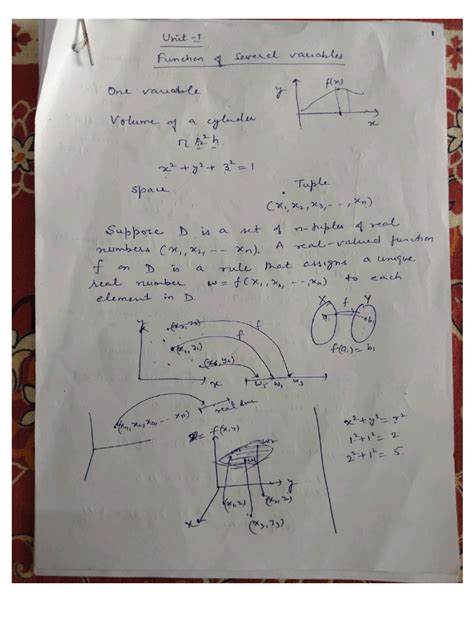 1
Unit - I
Function of Several variables
One variable
y f(x) x
Volume of a cylinder
π r² h
x² + y² + z² = 1
Space
Tuple
(x₁, x₂, x₃, - - , xₙ)
Suppose D is a set of n-tuples of real
numbers (x₁, x₂, -- xₙ). A real-valued function
f on D is a rule that assigns a unique
real number w = f(x₁, x₂, --, xₙ) to each
element in D.
X f Y
f(a₁) = b₁
y f f
(x₁, y₁)
x
real line
(x₁, x₂, x₃, ... xₙ)
z = f(x, y)
x² + y² = z²
1² + 1² = 2
2² + 1² = 5
y
x
(x₃, y₃)